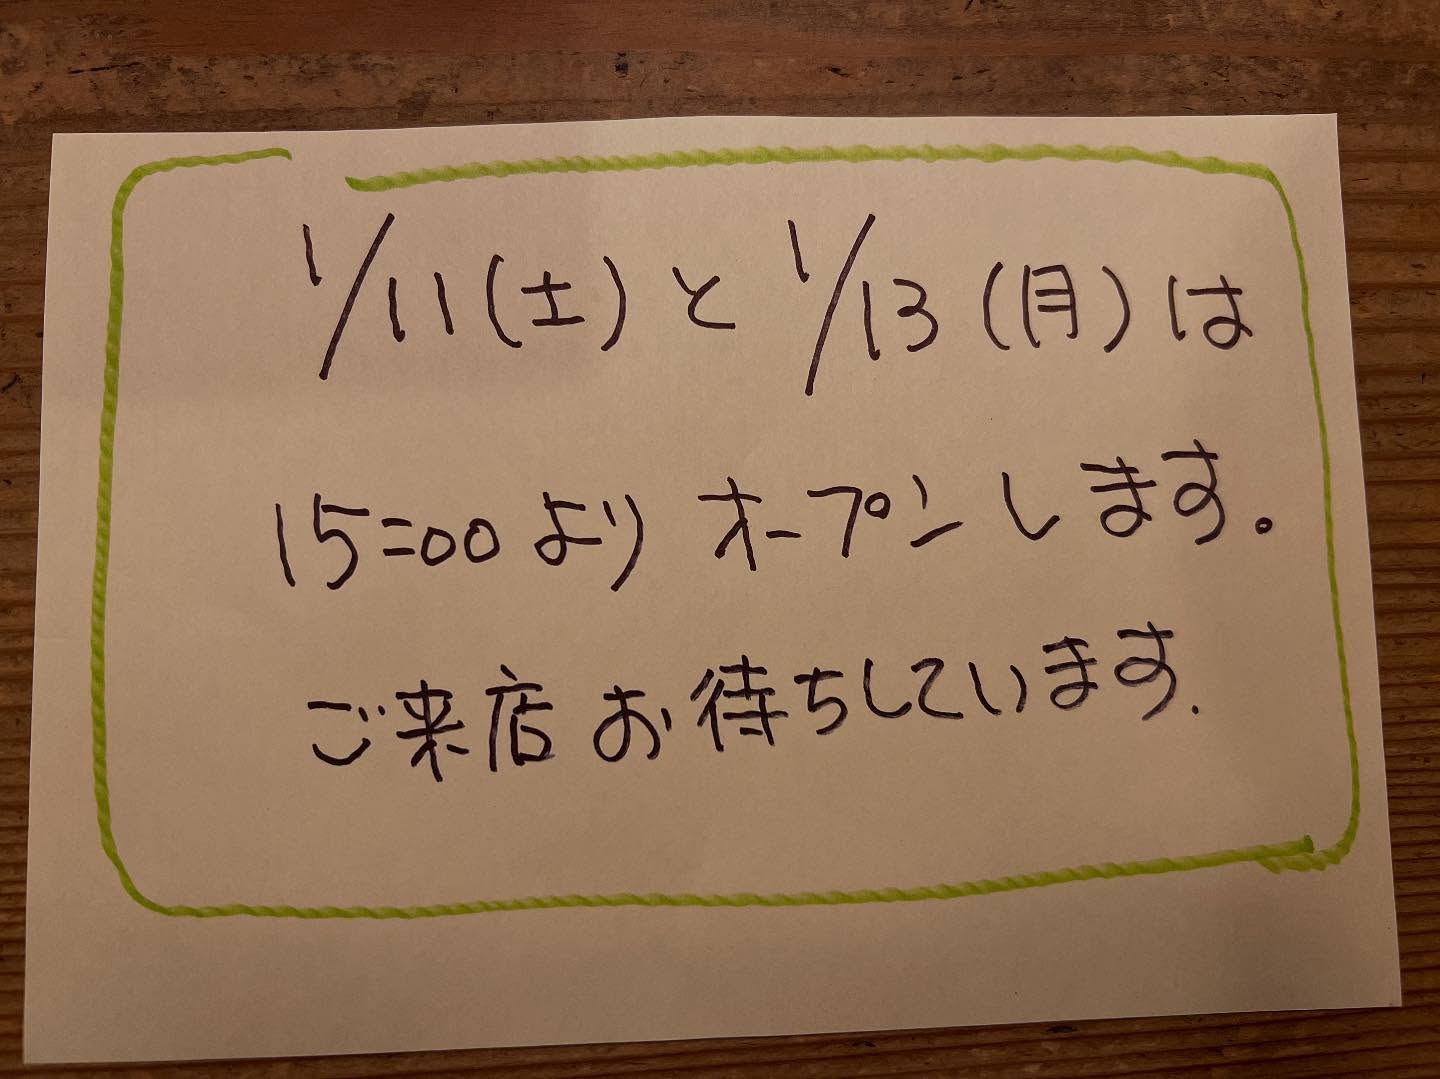 1/11(土)と1/13(月)は
15:00よりオープンします。
ご来店お待ちしています.